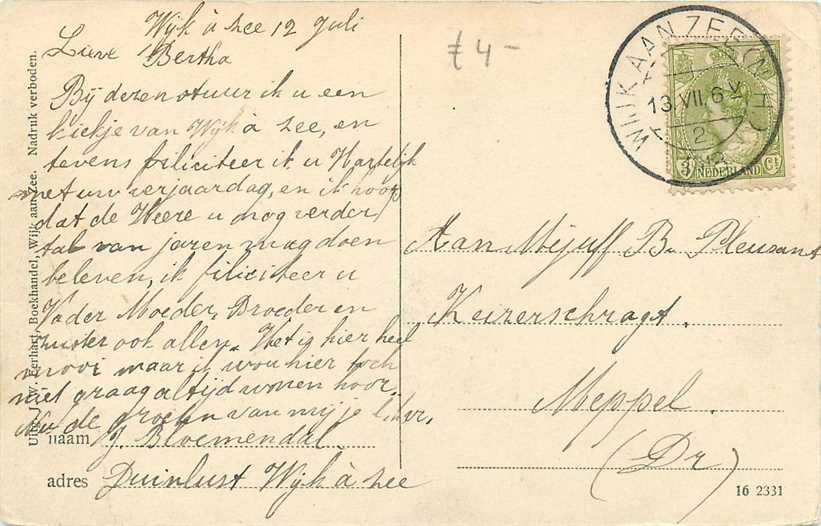 Wijk à Zee 12 Juli
Lieve Bertha
Bij dezen stuur ik u een
kiekje van Wijk à Zee, en
tevens filiciteer ik u Hartelijk
met uw verjaardag, en ik hoop
dat de Heere u mog verder
tal van jaren mag doen
beleven, ik filiciteer u
Vader Moeder, Broeder en
zuster ook allen. Het is hier heel
mooi maar ik wou hier toch
niet graag altijd wonen hoor.
Nu de groeten van mij je liefve,
naam J. Bloemendal
adres Duinlust Wijk à Zee
Uitg. J. W. Eerhart, Boekhandel, Wijk aan Zee. Nadruk verboden.
£ 4 -
WIJK AAN ZEE (N.H.)
13.VII. 6 V
2
3 NEDERLAND Ct
Aan Mejuff B. Pleusant
Keizerschragt.
Meppel.
(Dr)
16 2331